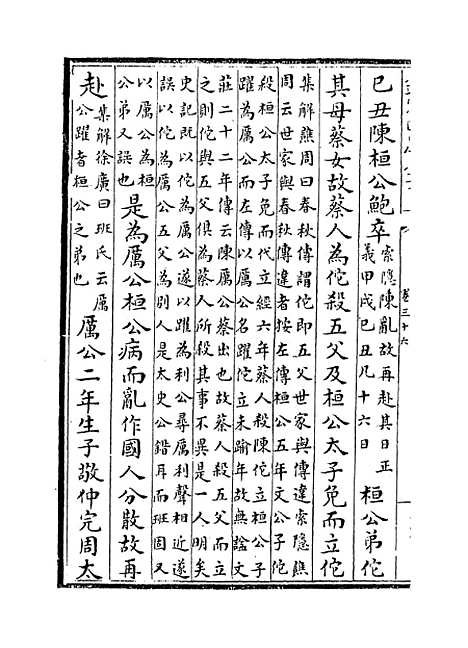 己丑陳桓公鮑卒
索隱陳亂故再赴其日正
義甲戌己丑凡十六日
桓公弟佗
其母蔡女故蔡人為佗殺五父及桓公太子免而立佗
集解譙周曰春秋傳謂佗即五父世家與傳違索隱譙
周云世家與春秋傳違者按左傳桓公五年文公子佗
殺桓公太子免而代立經六年蔡人殺陳佗立桓公子
躍為厲公而左傳以厲公名躍佗立未踰年故無諡又
莊二十二年傳云陳厲公蔡出也故蔡人殺五父而立
之則佗與五父俱為蔡人所殺其事不異是一人明矣
史記既以佗為厲公遂以躍為利公尋厲利聲相近遂
誤以佗為厲公五父為別人是太史公錯耳而班固又
以厲公為桓
公弟又誤也
是為厲公桓公病而亂作國人分散故再
赴
集解徐廣曰班氏云厲
公躍者桓公之弟也
厲公二年生子敬仲完周太
卷三十六